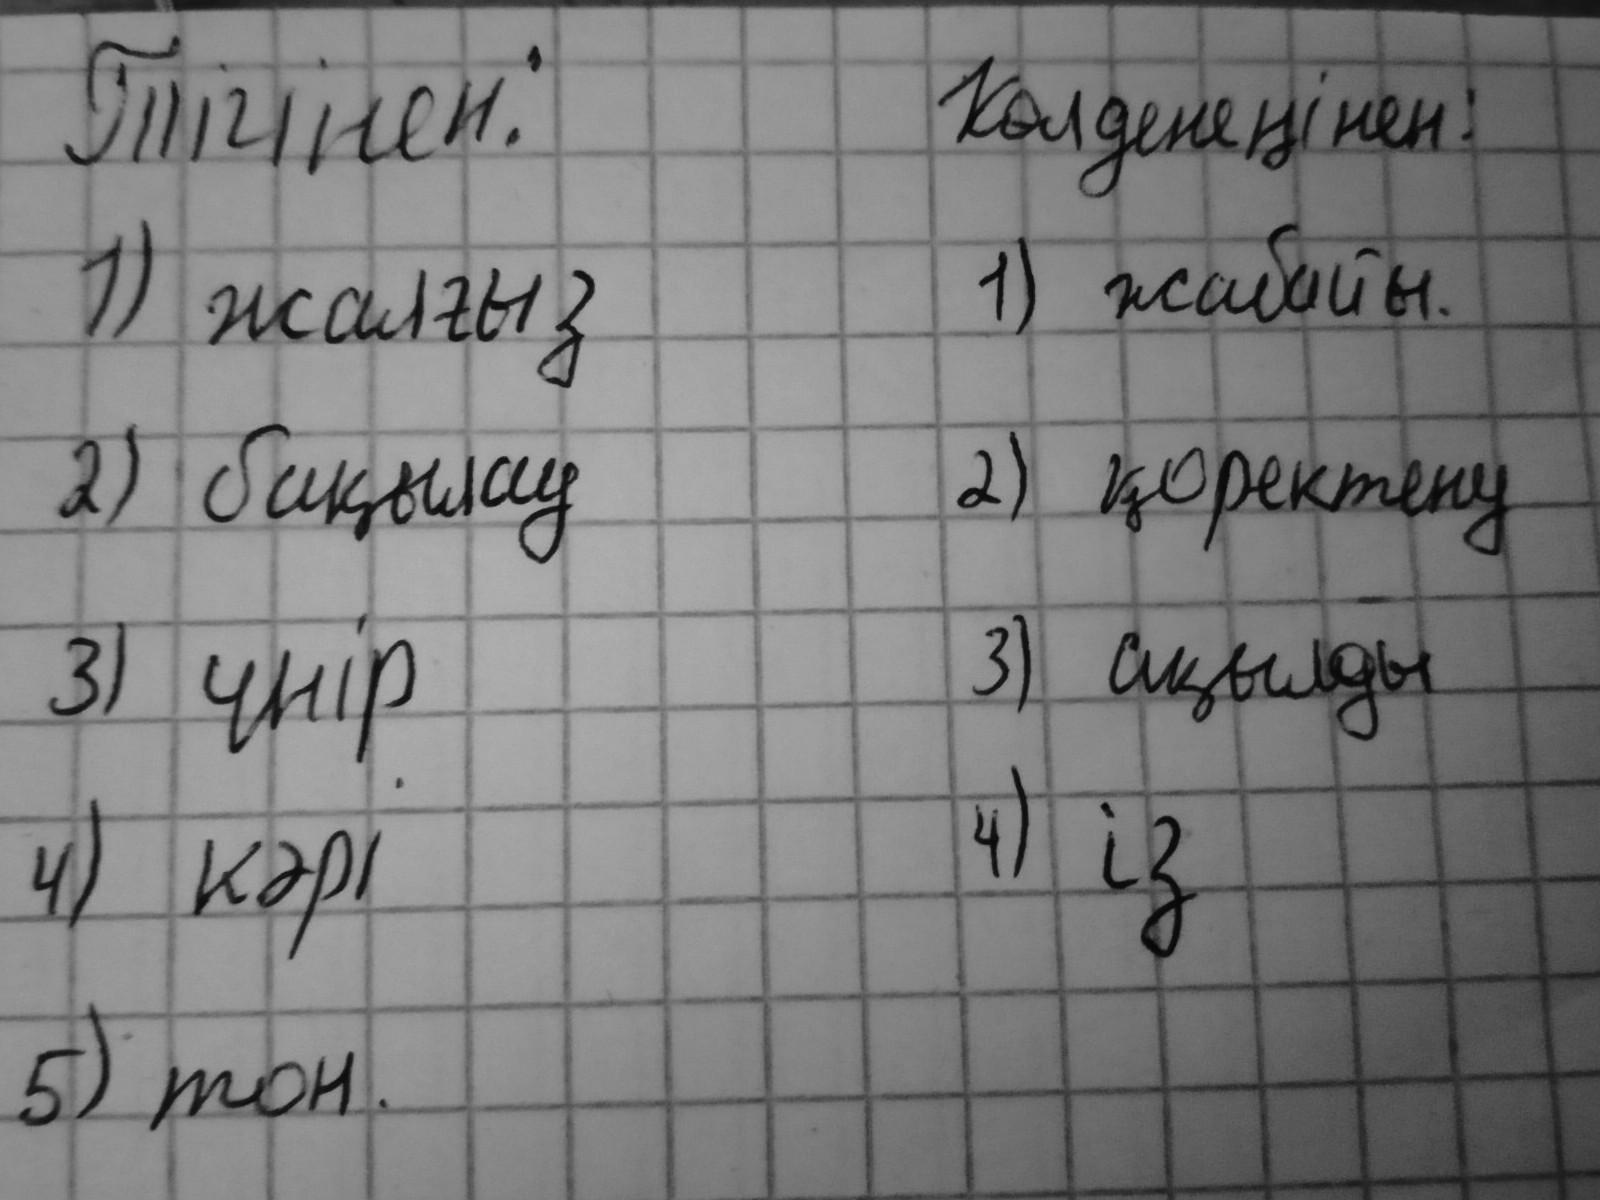 Тігінен:
1) жалғыз
2) бақылау
3) үңгір
4) кәрі
5) тон.
Көлденеңінен:
1) жабайы.
2) қоректену
3) ақылды
4) із